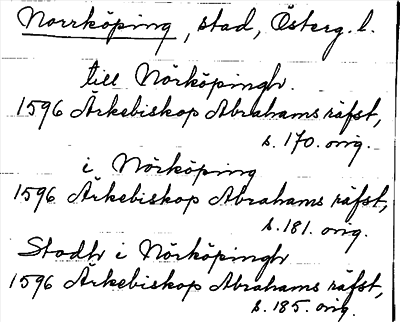 Norrköping, stad, Österg. l.
till Nörköpingh.
1596 Ärkebiskop Abrahams räfst,
s. 170. orig.
i Nörköping
1596 Ärkebiskop Abrahams räfst,
s. 181. orig.
Stadh i Nörköpingh
1596 Ärkebiskop Abrahams räfst,
s. 185. orig.